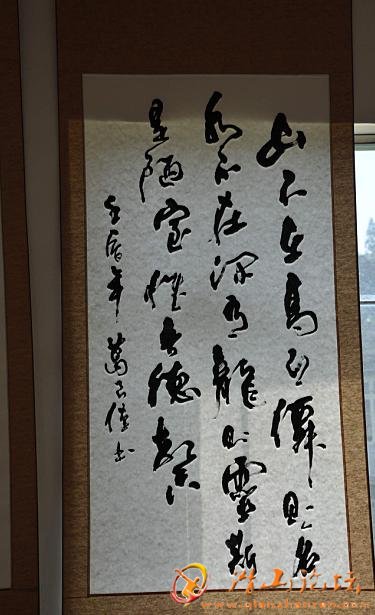 山不在高有僊則名
水不在深有龍則靈斯
是陋室惟吾德馨
壬辰年 葛 書
潜山论坛